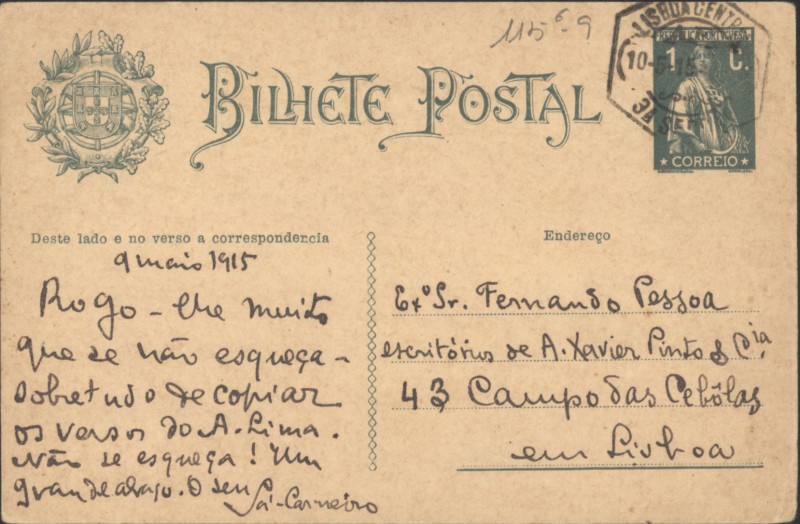 1156-9
LISBOA CENTRAL
REPUBLICA PORTUGUESA
1 C.
10-5-15
3ª SE
CORREIO
BILHETE POSTAL
Deste lado e no verso a correspondencia
9 maio 1915
Rogo-lhe muito
que se não esqueça -
sobretudo de copiar
os versos do A. Lima.
Não se esqueça! Um
grande abraço. O seu
Sá-Carneiro
Endereço
Exº Sr. Fernando Pessoa
escritórios de A. Xavier Pinto & Cia.
43 Campo das Cebôlas
em Lisboa